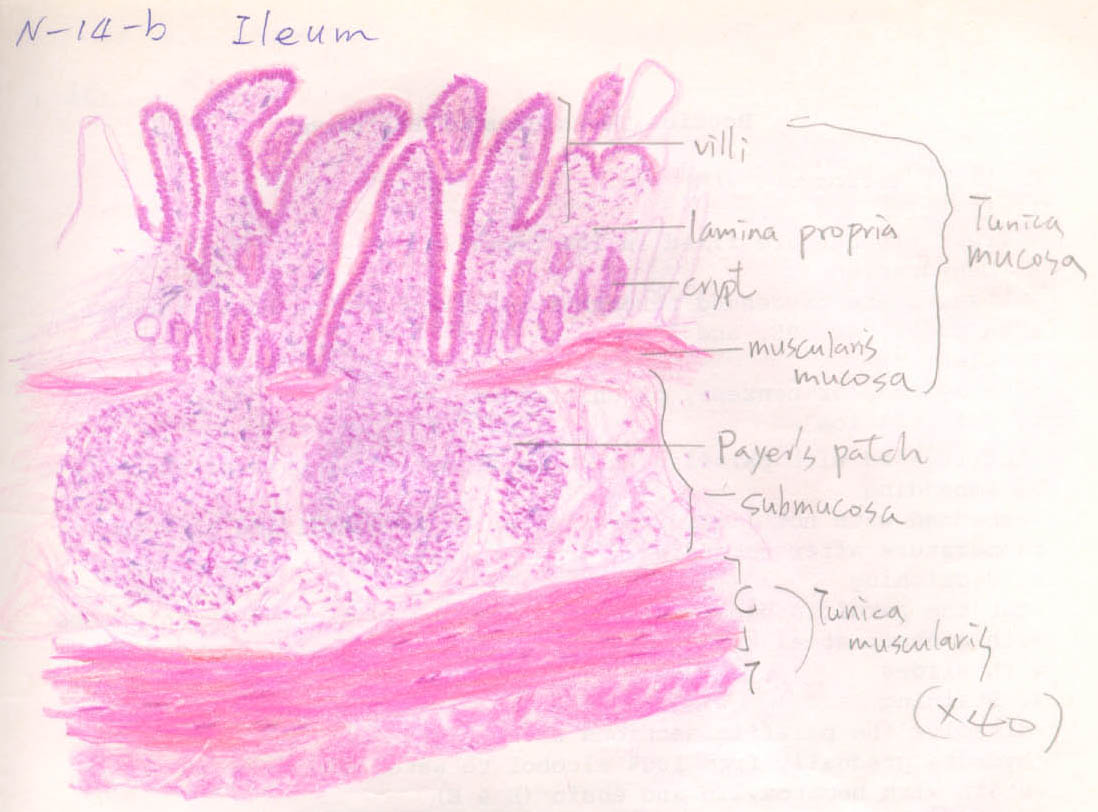 N-14-b Ileum
villi
lamina propria
crypt
muscularis
mucosa
Tunica
mucosa
Payer's patch
submucosa
Tunica
muscularis
(×40)